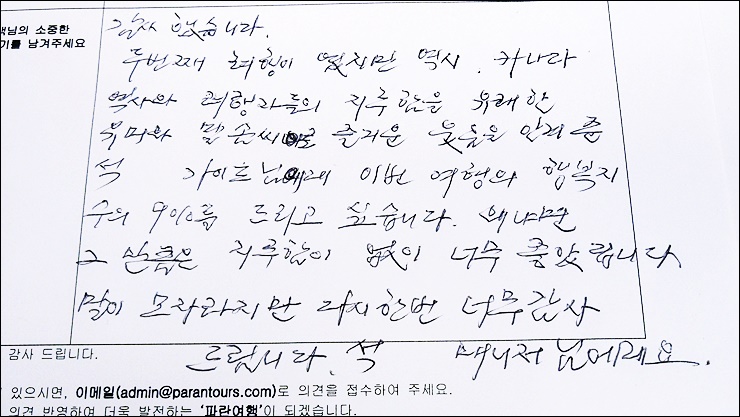 객님의 소중한
기를 남겨주세요
감사 했습니다.
두번째 여행이 였지만 역시. 캐나다
역사와 여행자들의 지루함을 유쾌한
유머와 말솜씨로 즐거운 웃음을 안겨 준
석 가이드님에게 이번 여행의 행복지
수의 90%를 드리고 싶습니다. 왜냐면
그 만큼은 지루함이 없이 너무 좋았습니다
말이 모자라지만 다시한번 너무 감사
감사 드립니다. 드립니다. 석 매니저 님에게요.
있으시면, 이메일(admin@parantours.com)로 의견을 접수하여 주세요.
의견 반영하여 더욱 발전하는 '파란여행'이 되겠습니다.